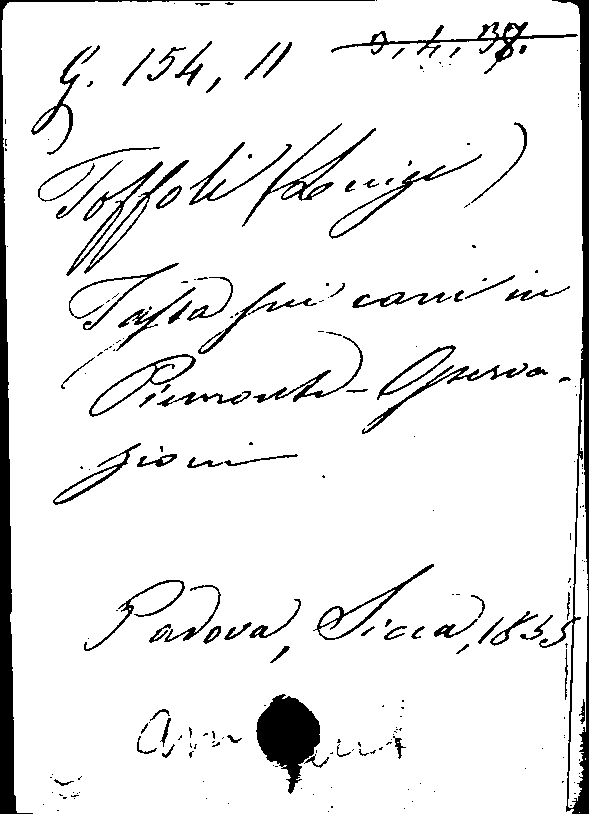 G. 154, 11 3, 4, 38.
Toffoli (Luigi)
Tassa sui cani in
Piemonte - Osserva-
zioni
Padova, Sicca, 1855